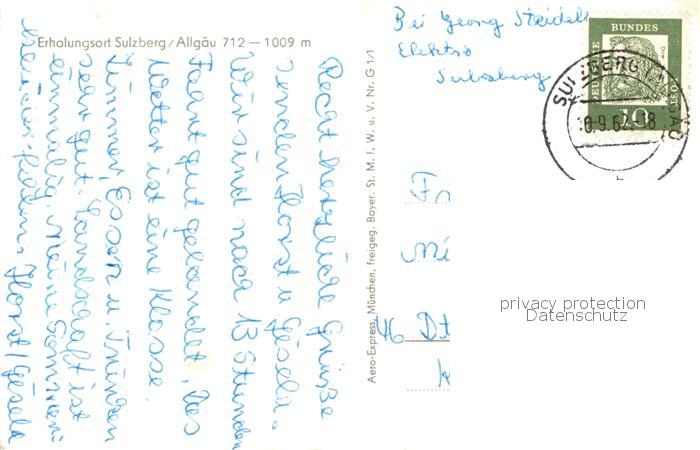 Erholungsort Sulzberg/Allgäu 712 — 1009 m
Recht herzliche Grüße
senden Horst u Gisela.
Wir sind nach 13 Stunden
Fahrt gut gelandet, das
Wetter ist eine Klasse.
Zimmer, Essen u. Trinken
sehr gut. Landschaft ist
einmalig. Meine
Horst/Gisela
Aero-Express, München, freigeg. Bayer. St. M. f. W. u. V. Nr. G 1/1
Bei Georg Steidele
Elektro
Sulzberg
DEUTSCHE BUNDES
10
SULZBERG
18
46 Dt
privacy protection
Datenschutz